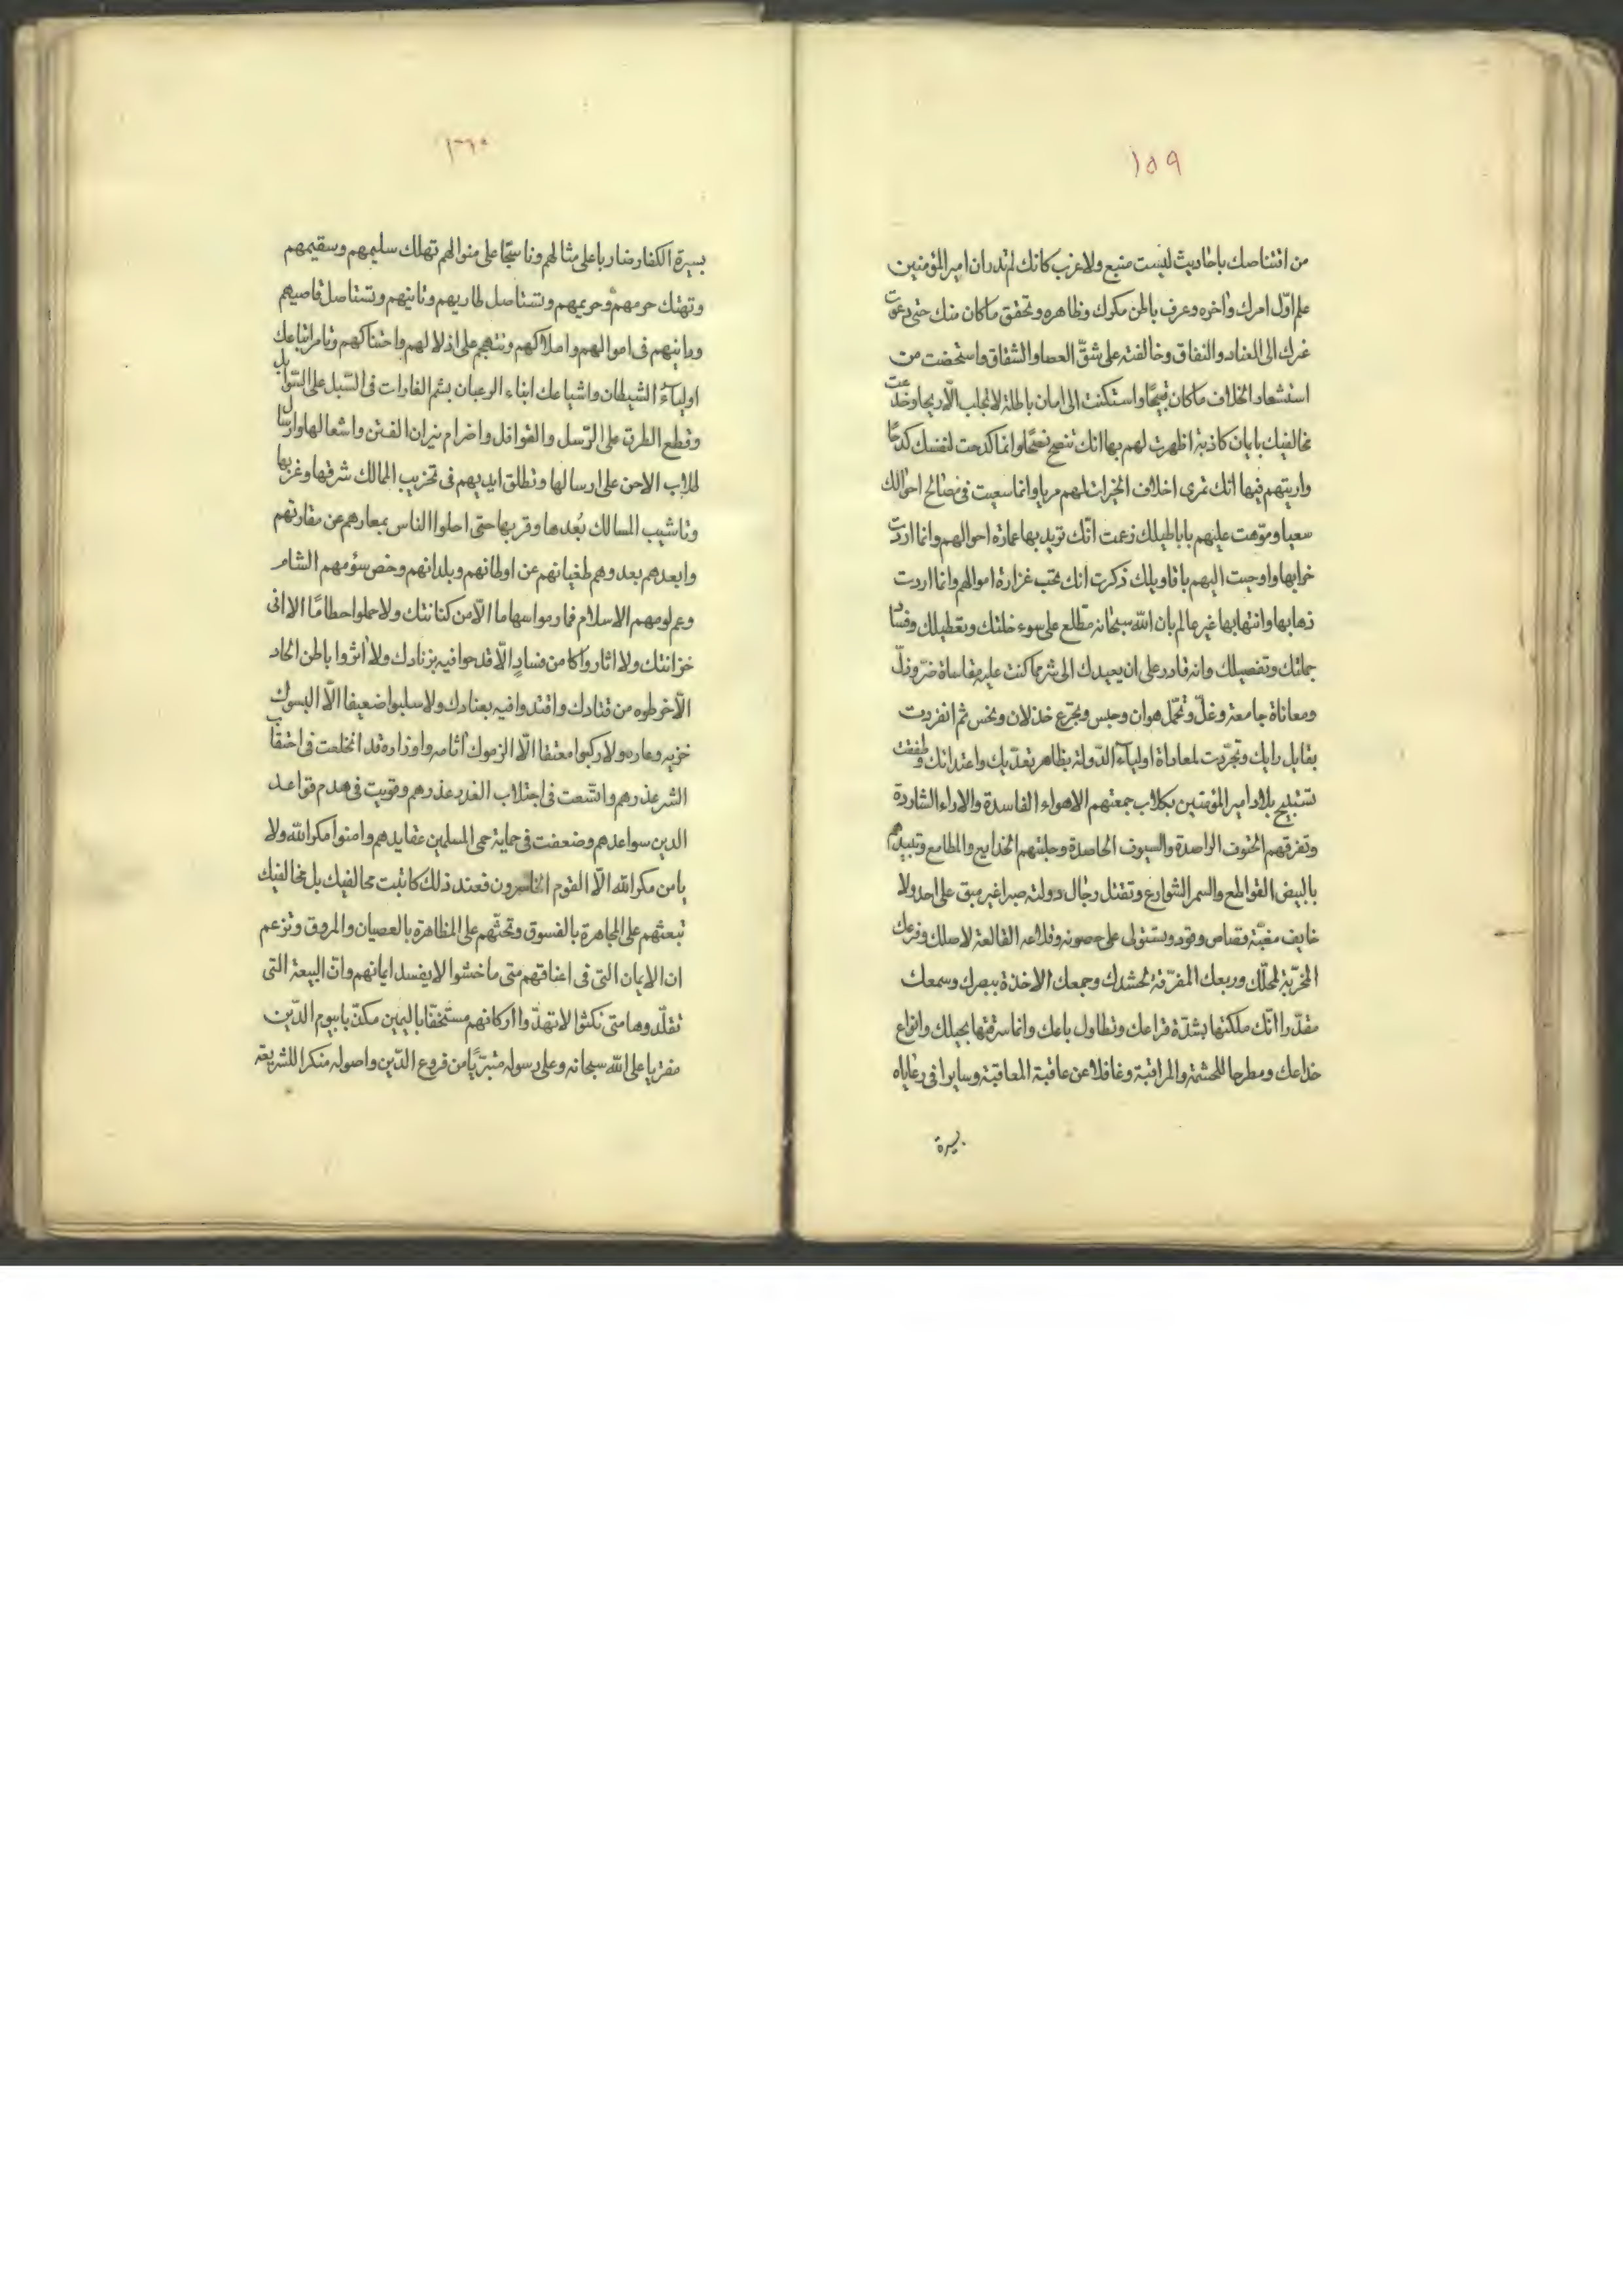 ١٥٩
من اقتناصك باحاديث ليست منبع ولا غرب كانك لم تدر ان امير المؤمنين
علم اوّل امرك واخره وعرف باطن مكرك وظاهره وتحقق ما كان منك حتى دعوت
غرك الى العناد والنفاق وخالفته على شقّ العصا والشقاق واستحضت من
استشعار الخلاف ما كان قبيحًا واستكنت الى امان باطلة لا تجلب الّا ريحا وخدعت
مخالفيك بايمان كاذبة اظهرت لهم بها انك تنصح نصحًا وانما كدحت لنفسك كدحًا
واريتهم فيها انك تمرى اخلاف الخيرات لهم مريا وانما سعيت فى مصالح احوالك
سعيا وموّهت عليهم باباطيلك زعمت انّك تريد بها عمارة احوالهم وانما اردت
خرابها واوحيت اليهم باقاويلك ذكرت انك تحب غزارة اموالهم وانما اردت
ذهابها وانتهابها غير عالم بان الله سبحانه مطّلع على سوء خلتك وتعطيلك وفساد
جملتك وتفصيلك وانه قادر على ان يعيدك الى شر مما كنت عليه مقاساة ضرّ وذلّ
ومعاناة جامعة وغلّ وتحمّل هوان وحبس وتجرّع خذلان ونحس ثم انفردت
بقابل رايك وتجرّدت لمعاداة اولياء الدّولة بظاهر تعدّيك واعتدائك وطفقت
تستبيح بلاد امير المؤمنين بكلاب جمعتهم الاهواء الفاسدة والاراء الشاردة
وتفرقهم الحتوف الراصدة والسيوف الحاصدة وجلبتهم الخدايع والمطامع وتبيدهم
بالبيض القواطع والسمر الشوارع وتقتل رجال دولته صبرا غير مبق على احد ولا
خايف مغبّة قصاص وقود وتستولى على حصونه وقلاعه القالعة لاصلك وفرعك
المخرّبة لمحلّك وربعك المفرّقة لحشدك وجمعك الاخذة ببصرك وسمعك
مقدّرا انّك ملكتها بشدّة قراعك وتطاول باعك وانما سرقتها بحيلك وانواع
خداعك ومطرحا للحشمة والمراقبة وغافلا عن عاقبة المعاقبة وسايرا فى رعاياه
بسيرة
١٦٠
بسيرة الكفار ضاربا على مثالهم وناسجًا على منوالهم تهلك سليمهم وسقيمهم
وتهتك حرمهم وحريمهم وتستاصل طاريهم وتانيهم وتستاصل قاصيهم
ودانيهم فى اموالهم واملاكهم وتتهجم على اذلالهم واحتناكهم وتامر اتباعك
اولياء الشيطان واشياعك ابناء الرعبان بشم الغارات فى السّبل على السّوابل
وقطع الطرق على الرّسل والقوافل واضرام نيران الفتن واشعالها وارسال
طلاب الاحن على ارسالها وتطلق ايديهم فى تخريب الممالك شرقها وغربها
وتاشيب المسالك بُعدها وقربها حتى احلوا الناس بمعارهم عن مقارّتهم
وابعدهم بعد وهم طغيانهم عن اوطانهم وبلدانهم وخص سؤمهم الشام
وعم لومهم الاسلام فما رموا سهاما الّا من كنانتك ولا حملوا حطامًا الا الى
خزانتك ولا اثاروا كامن فسادٍ الّا قدحوا فيه بزنادك ولا اثروا باطن الحاد
الّا خرطوه من قتادك واقتدوا فيه بعنادك ولا سلبوا ضعيفا الّا البسوك
خزيه وعاره ولا ركبوا معتقا الّا الزموك اثامه واوزاره قد انخلعت فى احتقاب
الشر عذرهم واتّسعت فى اجتلاب الغدر عذرهم وقويت فى هدم قواعد
الدين سواعدهم وضعفت فى حماية حمى المسلمين عقايدهم وامنوا مكر الله ولا
يامن مكر الله الّا القوم الخاسرون فعند ذلك كاتبت مخالفيك بل مخالفيك
تبعثهم على المجاهرة بالفسوق وتحثّهم على المظاهرة بالعصيان والمروق وتزعم
ان الايمان التى فى اعناقهم متى ما خشوا لا يفسد ايمانهم وانّ البيعة التى
تقلّدوها متى نكثوا لا تهدّ واركانهم مستخفّا باليمين مكذّبا بيوم الدّين
مفتريا على الله سبحانه وعلى رسوله متبرّيًا من فروع الدّين واصوله منكرا للشريعة